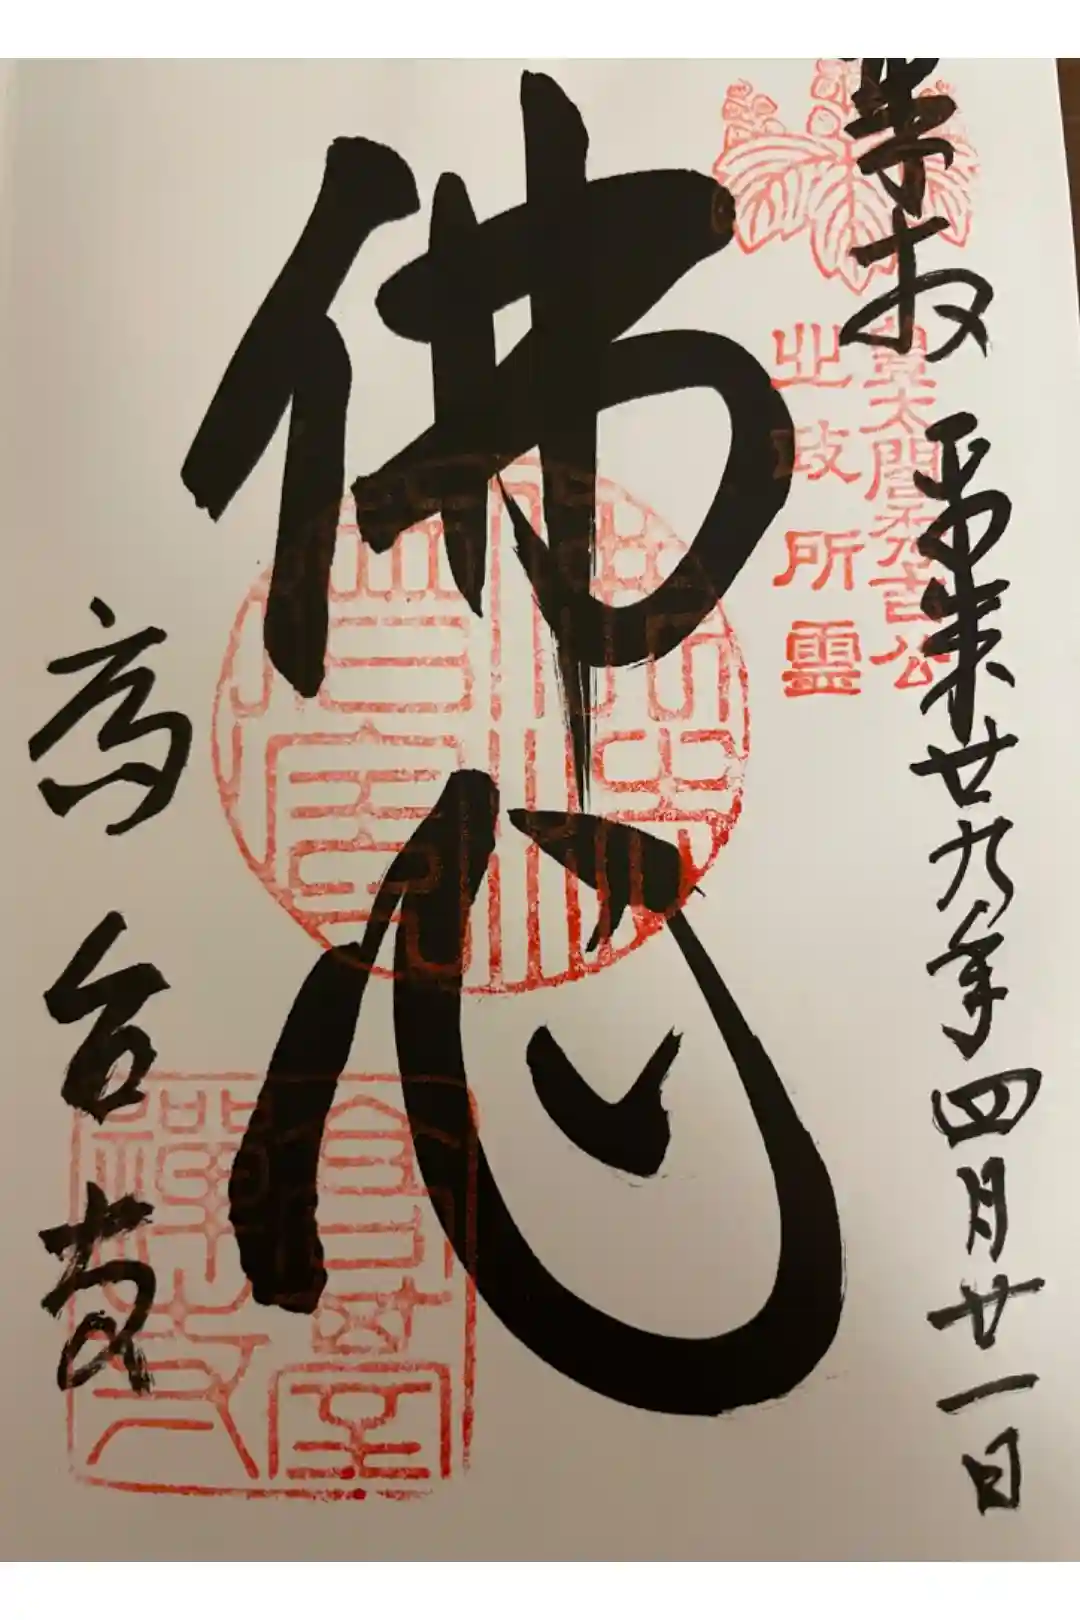 奉拝
平成廿九年四月廿一日
豊太閤秀吉公
北政所霊
佛心
高台寺
高臺禅寺